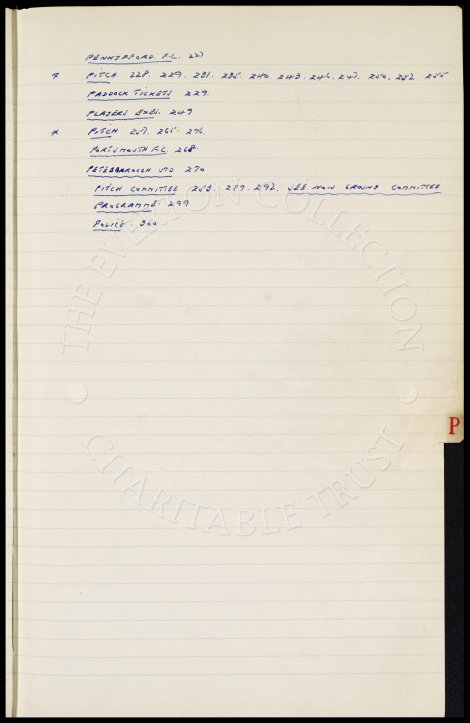 PENNYFFORD. F.C. 227
* PITCH 228. 229. 231. 235. 240. 243. 246. 247. 250, 252. 255
PADDOCK TICKETS 229.
PLAYERS EXES. 249
* PITCH 257. 265. 296.
PORTSMOUTH F.C. 268.
PETERBOROUGH UTD 270
PITCH COMMITTEE 283. 289. 292. SEE NOW GROUND COMMITTEE
PROGRAMME. 299
POLICE. 300
P
THE EVERTON COLLECTION
CHARITABLE TRUST